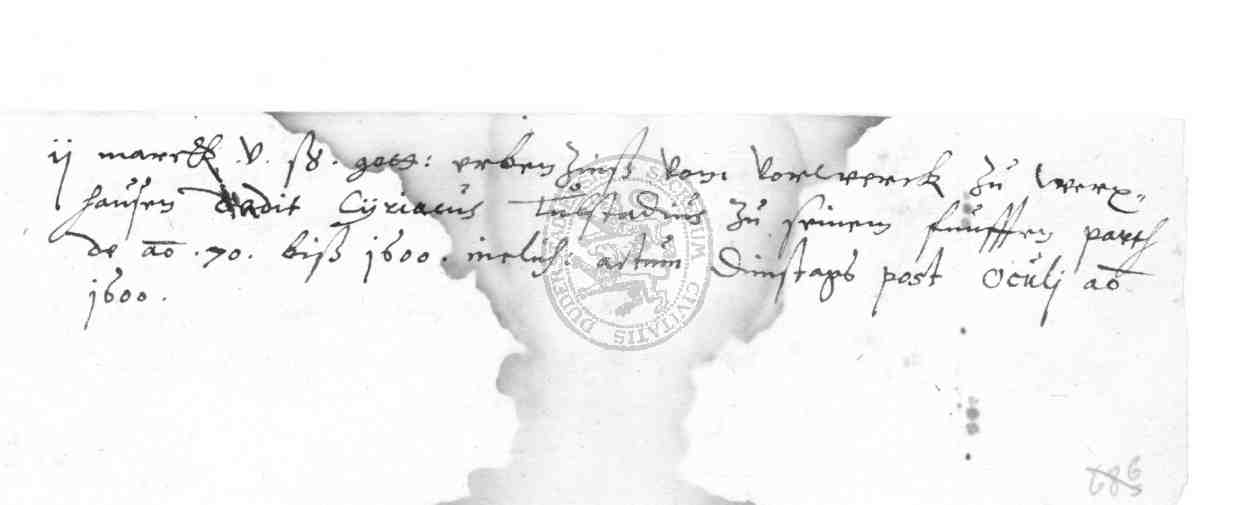 ij marck v. ß. gott: erbenzinß vom vorlwerck zu werx=
hausen dedit Cyriacus zu seinem funfften parth
de ao .70. biß 1600. inclus: actum Dinstags post Oculj ao
1600.
SIGILLUM CIVITATIS DUDER
686